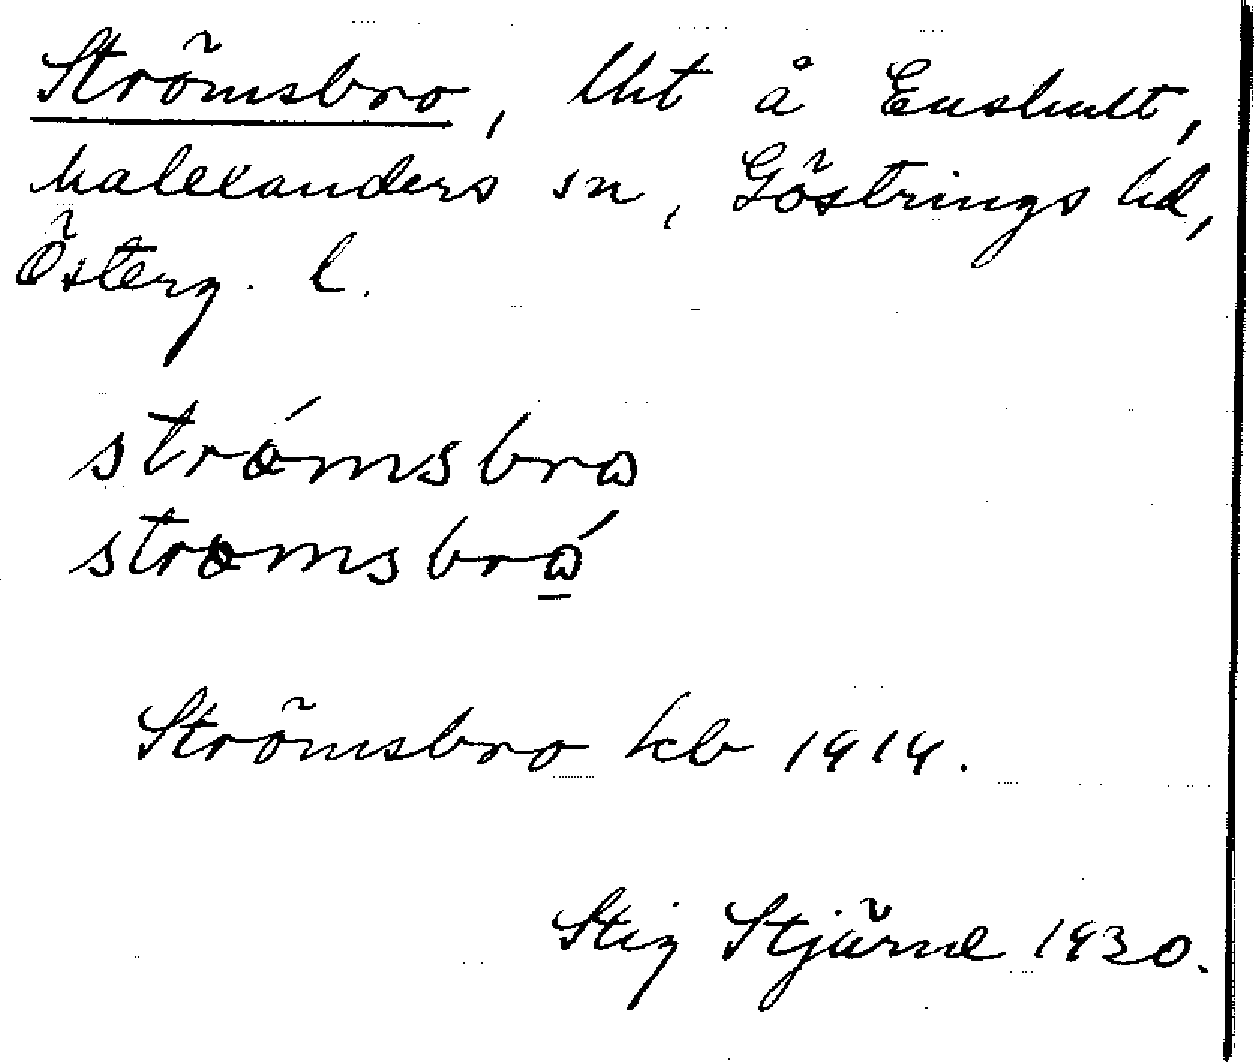 Strömsbro, lht å Enshult,
Malexanders sn, Göstrings hd,
Österg. l.
strǿmsbrω
strømsbrώ̲
Strömsbro kb 1914.
Stig Stjärne 1930.